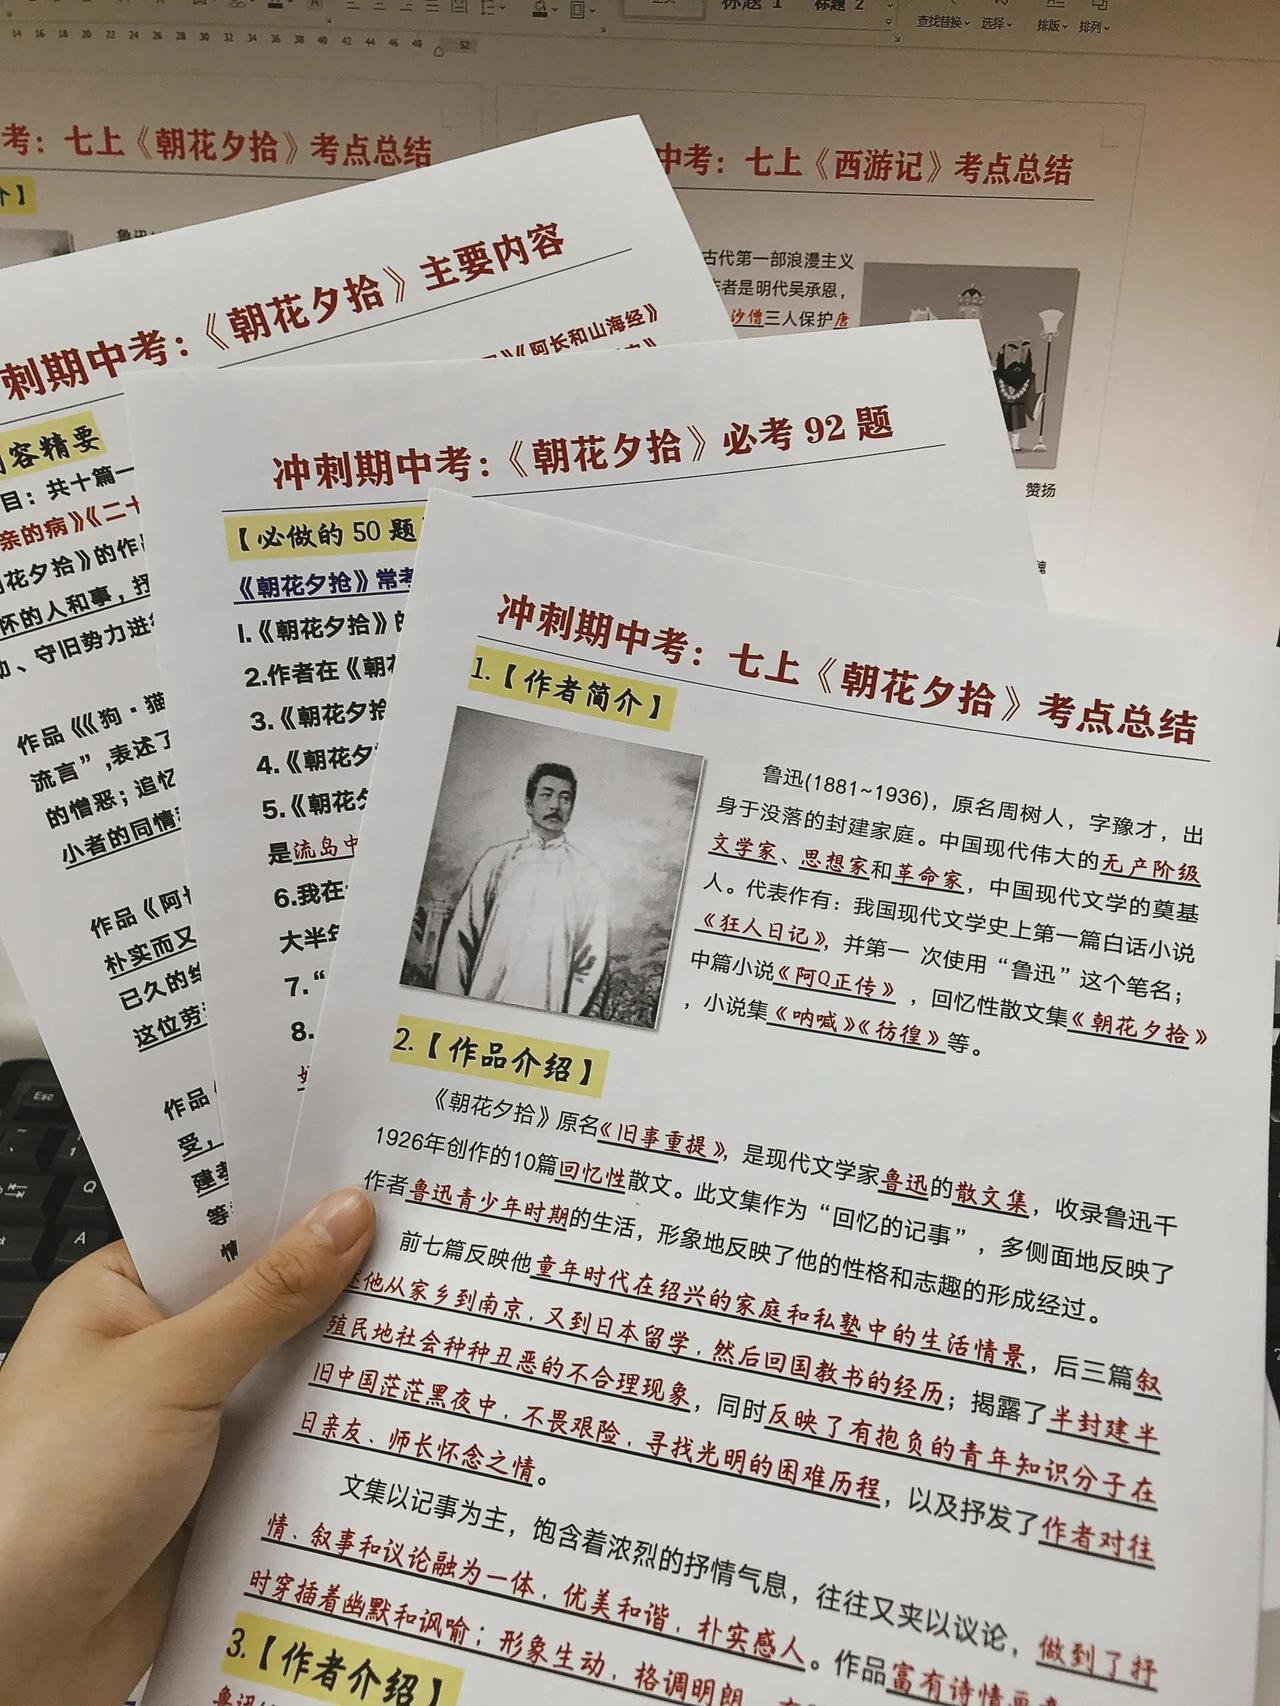 14 16 18 20 22 24 26 28 30 32 34 36 38 40 42 44 46 48 52
标题 1 标题 2
查找替换 选择 排版 排列
考：七上《朝花夕拾》考点总结
中考：七上《西游记》考点总结
古代第一部浪漫主义
者是明代吴承恩，
沙僧三人保护唐
赞扬
刺期中考：《朝花夕拾》主要内容
《阿长和山海经》
容精要
目：共十篇一
亲的病》《二十
花夕拾》的作
怀的人和事，抒
、守旧势力进
作品《《狗·猫
流言”，表述了
的憎恶；追忆
小者的同情
作品《阿长
朴实而又
已久的
这位劳
作品《
受，
建
等
情
冲刺期中考：《朝花夕拾》必考 92 题
【必做的 50 题
《朝花夕抢》常考
1.《朝花夕拾》的
2.作者在《朝花
3.《朝花夕拾
4.《朝花夕
5.《朝花夕
是流岛中
6.我在
大半年
7.“
8.
冲刺期中考：七上《朝花夕拾》考点总结
1.【作者简介】
鲁迅(1881~1936)，原名周树人，字豫才，出
身于没落的封建家庭。中国现代伟大的无产阶级
文学家、思想家和革命家，中国现代文学的奠基
人。代表作有：我国现代文学史上第一篇白话小说
《狂人日记》，并第一 次使用“鲁迅”这个笔名；
中篇小说《阿Q正传》，回忆性散文集《朝花夕拾》
，小说集《呐喊》《彷徨》等。
2.【作品介绍】
《朝花夕拾》原名《旧事重提》，是现代文学家鲁迅的散文集，收录鲁迅于
1926年创作的10篇回忆性散文。此文集作为“回忆的记事”，多侧面地反映了
作者鲁迅青少年时期的生活，形象地反映了他的性格和志趣的形成经过。
前七篇反映他童年时代在绍兴的家庭和私塾中的生活情景，后三篇叙
述他从家乡到南京，又到日本留学，然后回国教书的经历；揭露了半封建半
殖民地社会种种丑恶的不合理现象，同时反映了有抱负的青年知识分子在
旧中国茫茫黑夜中，不畏艰险，寻找光明的困难历程，以及抒发了作者对往
日亲友、师长怀念之情。
文集以记事为主，饱含着浓烈的抒情气息，往往又夹以议论，做到了抒
情、叙事和议论融为一体，优美和谐，朴实感人。作品富有诗情画意
时穿插着幽默和讽喻；形象生动，格调明朗
3.【作者介绍】
Esc
Q
A